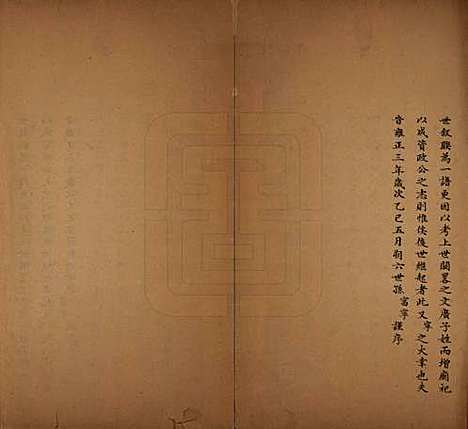 世叙联為一譜更因以考上世闕畧之文廣子姓而增廟祀
以成資政公之志則惟俟後世繼起者此又寧之大幸也夫
旹雍正三年歲次乙巳五月朔六世孫富寧謹序